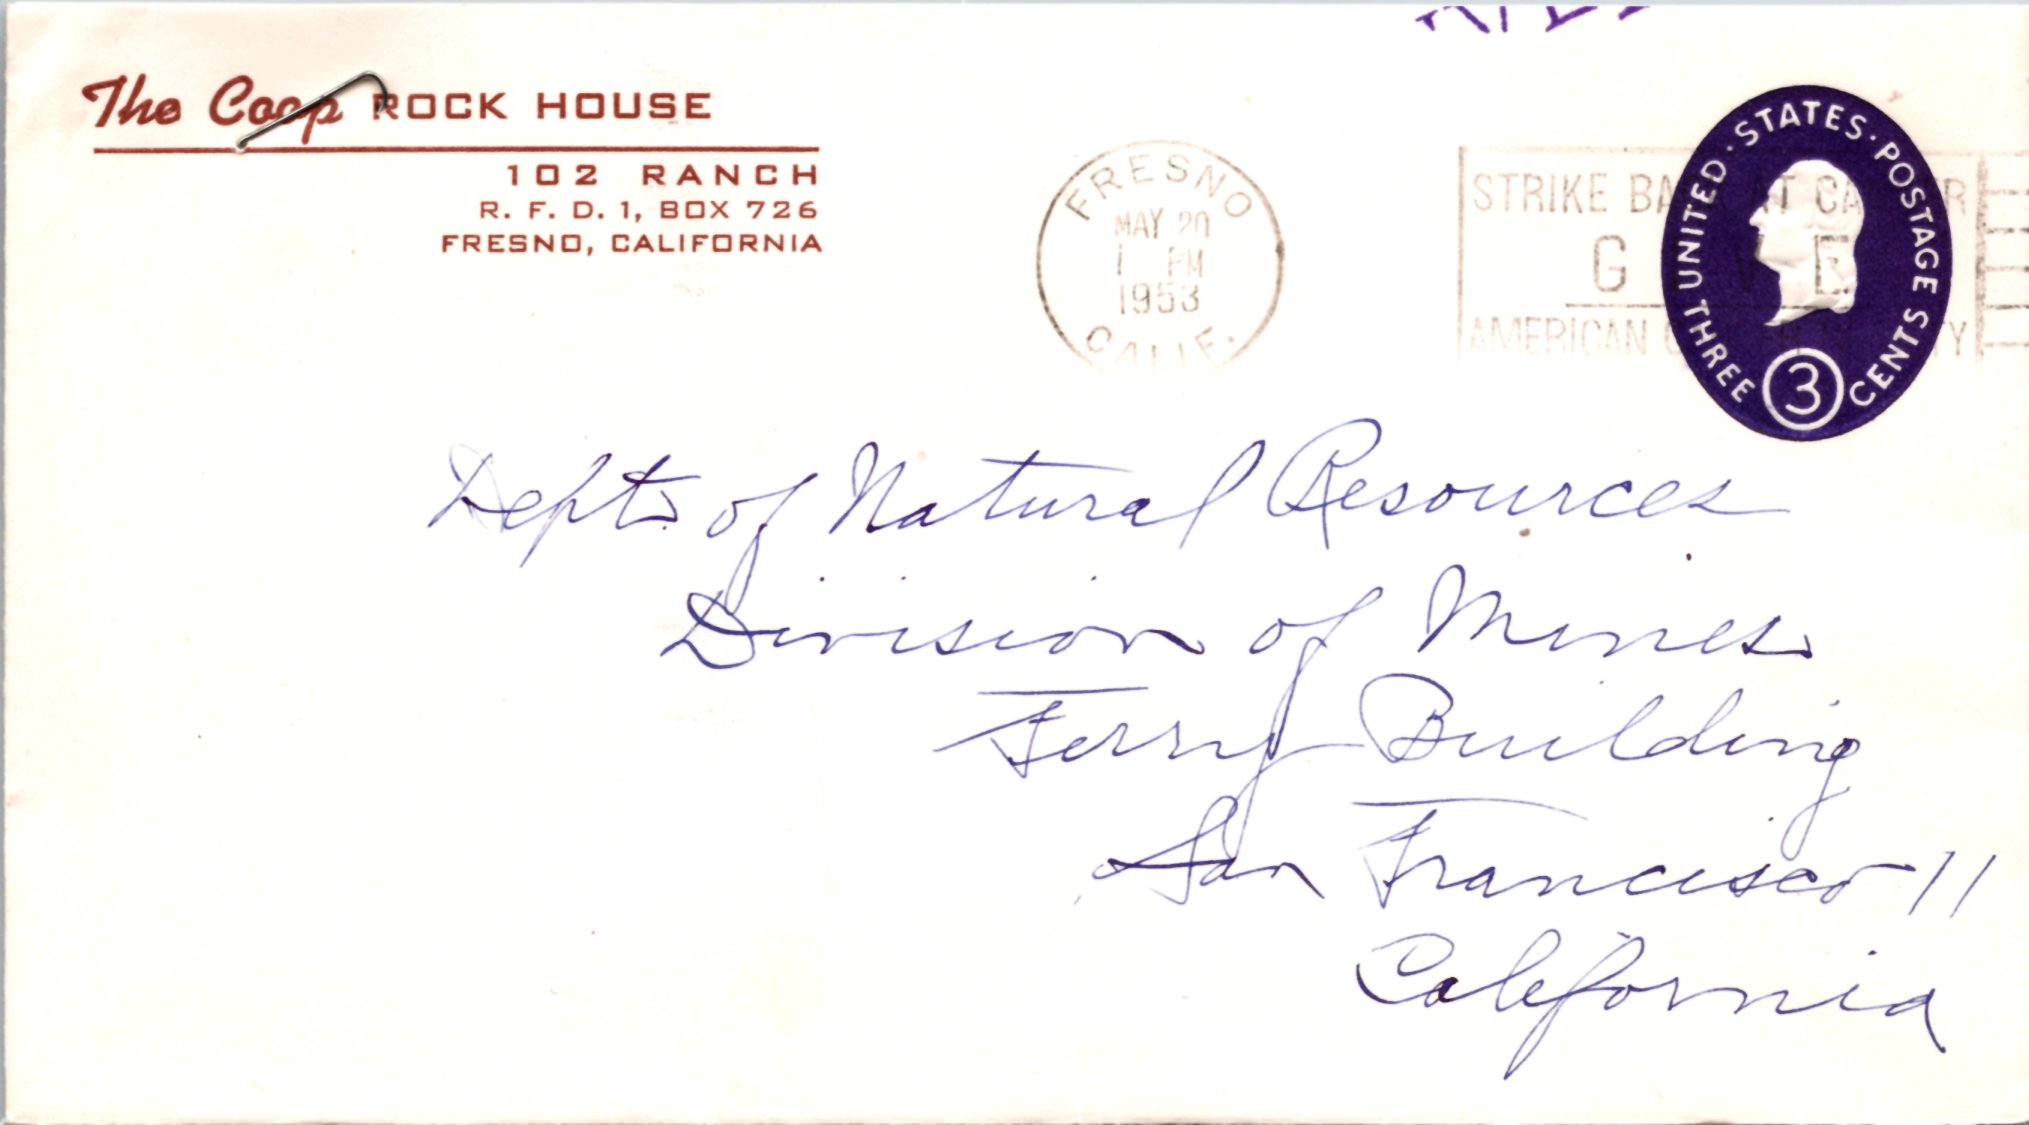 The Coop ROCK HOUSE
102 RANCH
R. F. D. 1, BOX 726
FRESNO, CALIFORNIA
FRESNO
MAY 20
1 PM
1953
CALIF.
STRIKE BACK AT CANCER
GIVE
AMERICAN CANCER SOCIETY
UNITED · STATES · POSTAGE
THREE 3 CENTS
Dept. of Natural Resources
Division of Mines
Ferry Building
San Francisco 11
California